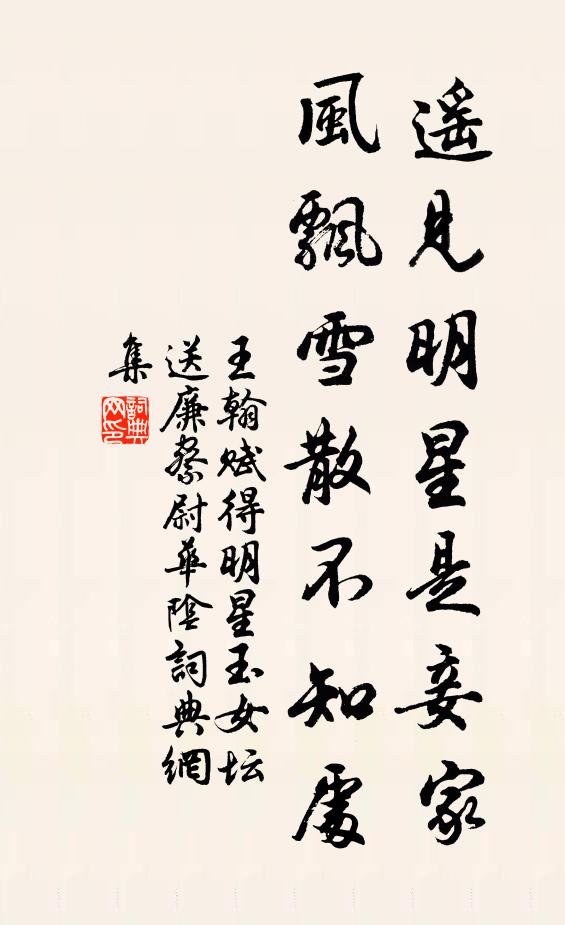 遥見明星是妾家
風飄雪散不知處
王翰赋得明星玉女坛
送廉察尉華陰詞典網
集
詞典
网印